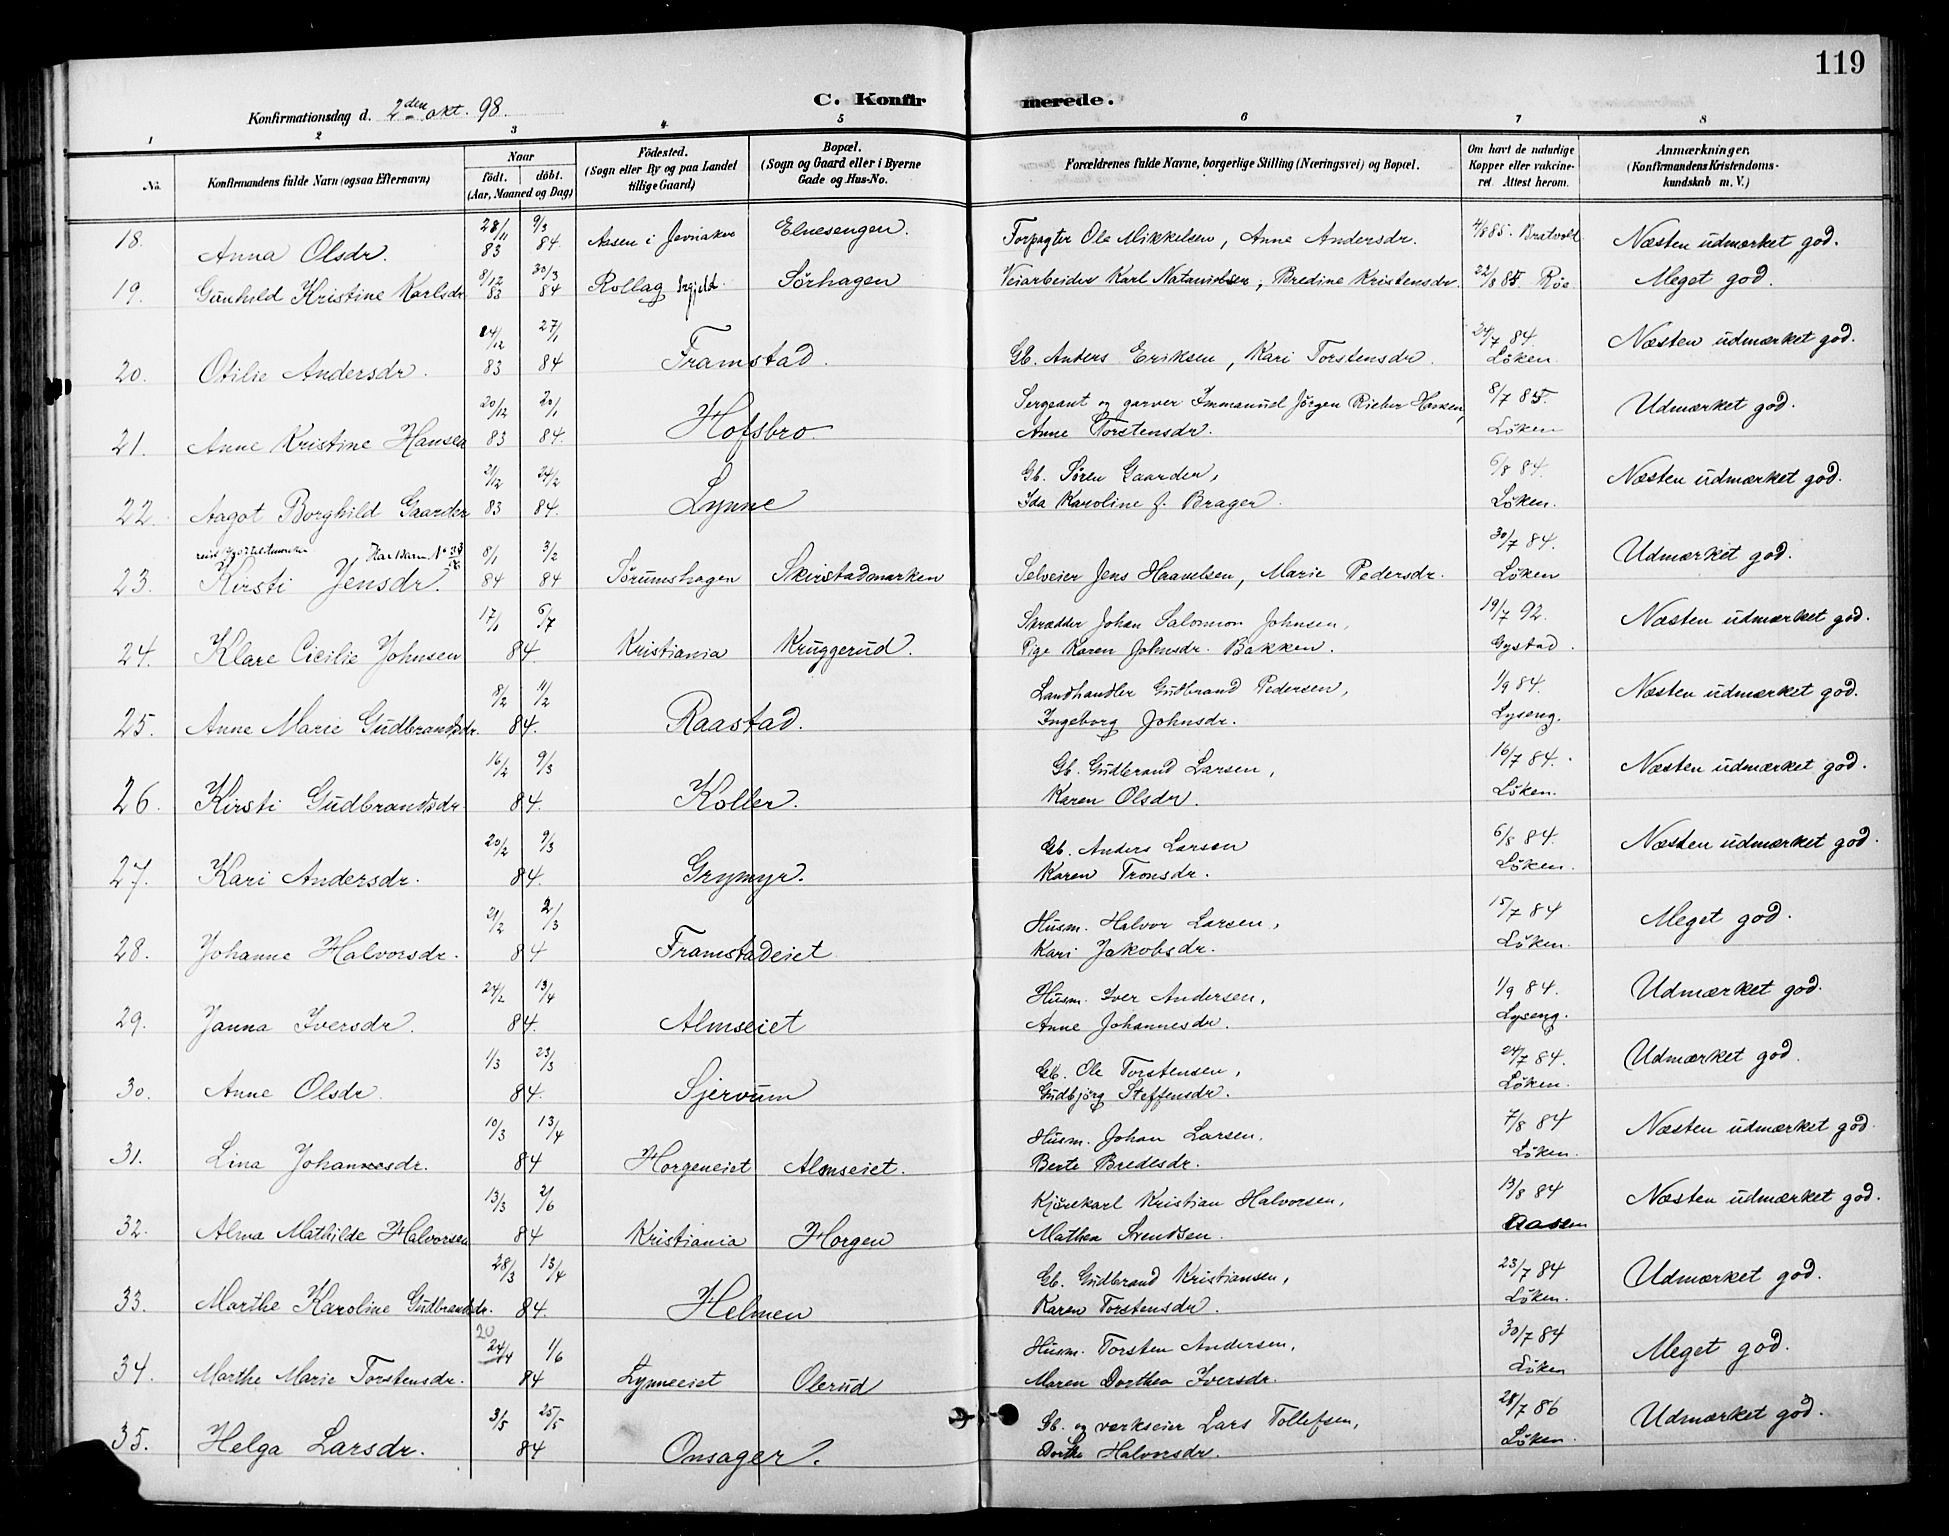 119
C. Konfirmerede.
Konfirmationsdag d. 2den okt. 98.
1 2 3 4 5 6 7 8
No. Konfirmandens fulde Navn (ogsaa Efternavn) Naar födt. döbt. (Aar, Maaned og Dag) Födested. (Sogn eller By og paa Landet tillige Gaard) Bopæl. (Sogn og Gaard eller i Byerne Gade og Hus-No. Forældrenes fulde Navne, borgerlige Stilling (Næringsvei) og Bopæl. Om havt de naturlige Kopper eller vakcineret. Attest herom. Anmærkninger. (Konfirmandens Kristendomskundskab m. V.)
18. Anna Olsdr. 28/11 83 9/3 84. Aasen i Jevnaker Elnesengen. Forpagter Ole Mikkelsen, Anne Andersdr. 4/8 85. Bratvold Næsten udmærket god.
19. Gunhild Kristine Karlsdr. 8/12 83 30/3 84 Rollag Veiarbeider Karl Natanielsen, Bredine Kristensdr. Sörhagen 22/8 85. Röe Meget god.
20. Otilie Andersdr. 24/12 83 27/1 84 Framstad. Gb. Anders Eriksen, Kari Torstensdr. 24/7 84. Löken. Næsten udmærket god.
21. Anne Kristine Hansen 20/12 83 20/1 84. Hofsbro Sergeant og garver Immanuel Jörgen Rieber Hansen, Anne Torstensdr. 8/7 85. Löken Udmærket god.
22. Aagot Borghild Gaarder 21/12 83 24/2 84. Lynne Gb. Sören Gaarder, Ida Karoline f. Brager. 6/8 84. Löken. Næsten udmærket god.
23. Kirsti Jensdr. 8/1 84 3/2 84 Sörumshagen Skirstadmarken Selveier Jens Haavelsen, Marie Pedersdr. 30/7 84. Löken Udmærket god.
24. Klare Cicilie Johnsen 17/1 6/7 84. Kristiania Kruggerud. Skrædder Johan Salomon Johnsen, Pige Karen Johnsdr. Bakken. 19/7 92. Gystad. Næsten udmærket god.
25. Anne Marie Gudbrandsdr. 8/2 11/2 84. Raastad. Landhandler Gudbrand Pedersen, Ingeborg Johnsdr. 1/9 84. Lyseng. Næsten udmærket god.
26. Kirsti Gudbrandsdr. 16/2 9/3 84. Koller. Gb. Gudbrand Larsen, Karen Olsdr. 16/7 84. Löken. Næsten udmærket god.
27. Kari Andersdr. 20/2 9/3 84. Grymyr. Gb. Anders Larsen Karen Tronsdr. 6/8 84. Löken. Næsten udmærket god.
28. Johanne Halvorsdr. 21/2 2/3 84 Framstadeiet Husm. Halvor Larsen, Kari Jakobsdr. 15/7 84 Löken. Meget god.
29. Janna Iversdr. 24/2 13/4 84. Almseiet Husm. Iver Andersen, Anne Johannesdr. 1/9 84. Lyseng. Udmærket god.
30. Anne Olsdr. 1/3 23/3 84. Sjervum Gb. Ole Torstensen, Gudbjörg Steffensdr. 24/7 84. Löken. Udmærket god.
31. Lina Johannesdr. 10/3 13/4 84 Horgeneiet Almseiet. Husm. Johan Larsen. Berte Bredesdr. 7/8 84 Löken. Næsten udmærket god.
32. Alma Mathilde Halvorsen 13/3 2/6 84 Kristiania Horgen Kjörekarl Kristian Halvorsen, Mathea Svendsen. 13/8 84 Næsten udmærket god.
33. Marthe Karoline Gudbrandsdr. 28/3 13/4 84. Helmen Gb. Gudbrand Kristiansen, Karen Torstensdr. 23/7 84 Löken. Udmærket god.
34. Marthe Marie Torstensdr. 20 24/4 1/6 84 Lynneeiet Olerud Husm. Torsten Andersen, Maren Dorthea Iversdr. 30/7 84 Löken Meget god.
35. Helga Larsdr. 3/5 25/5 84 Onsager. Gb. og værkseier Lars Tollefsen, Dorthe Halvorsdr. 28/7 86 Löken. Udmærket god.